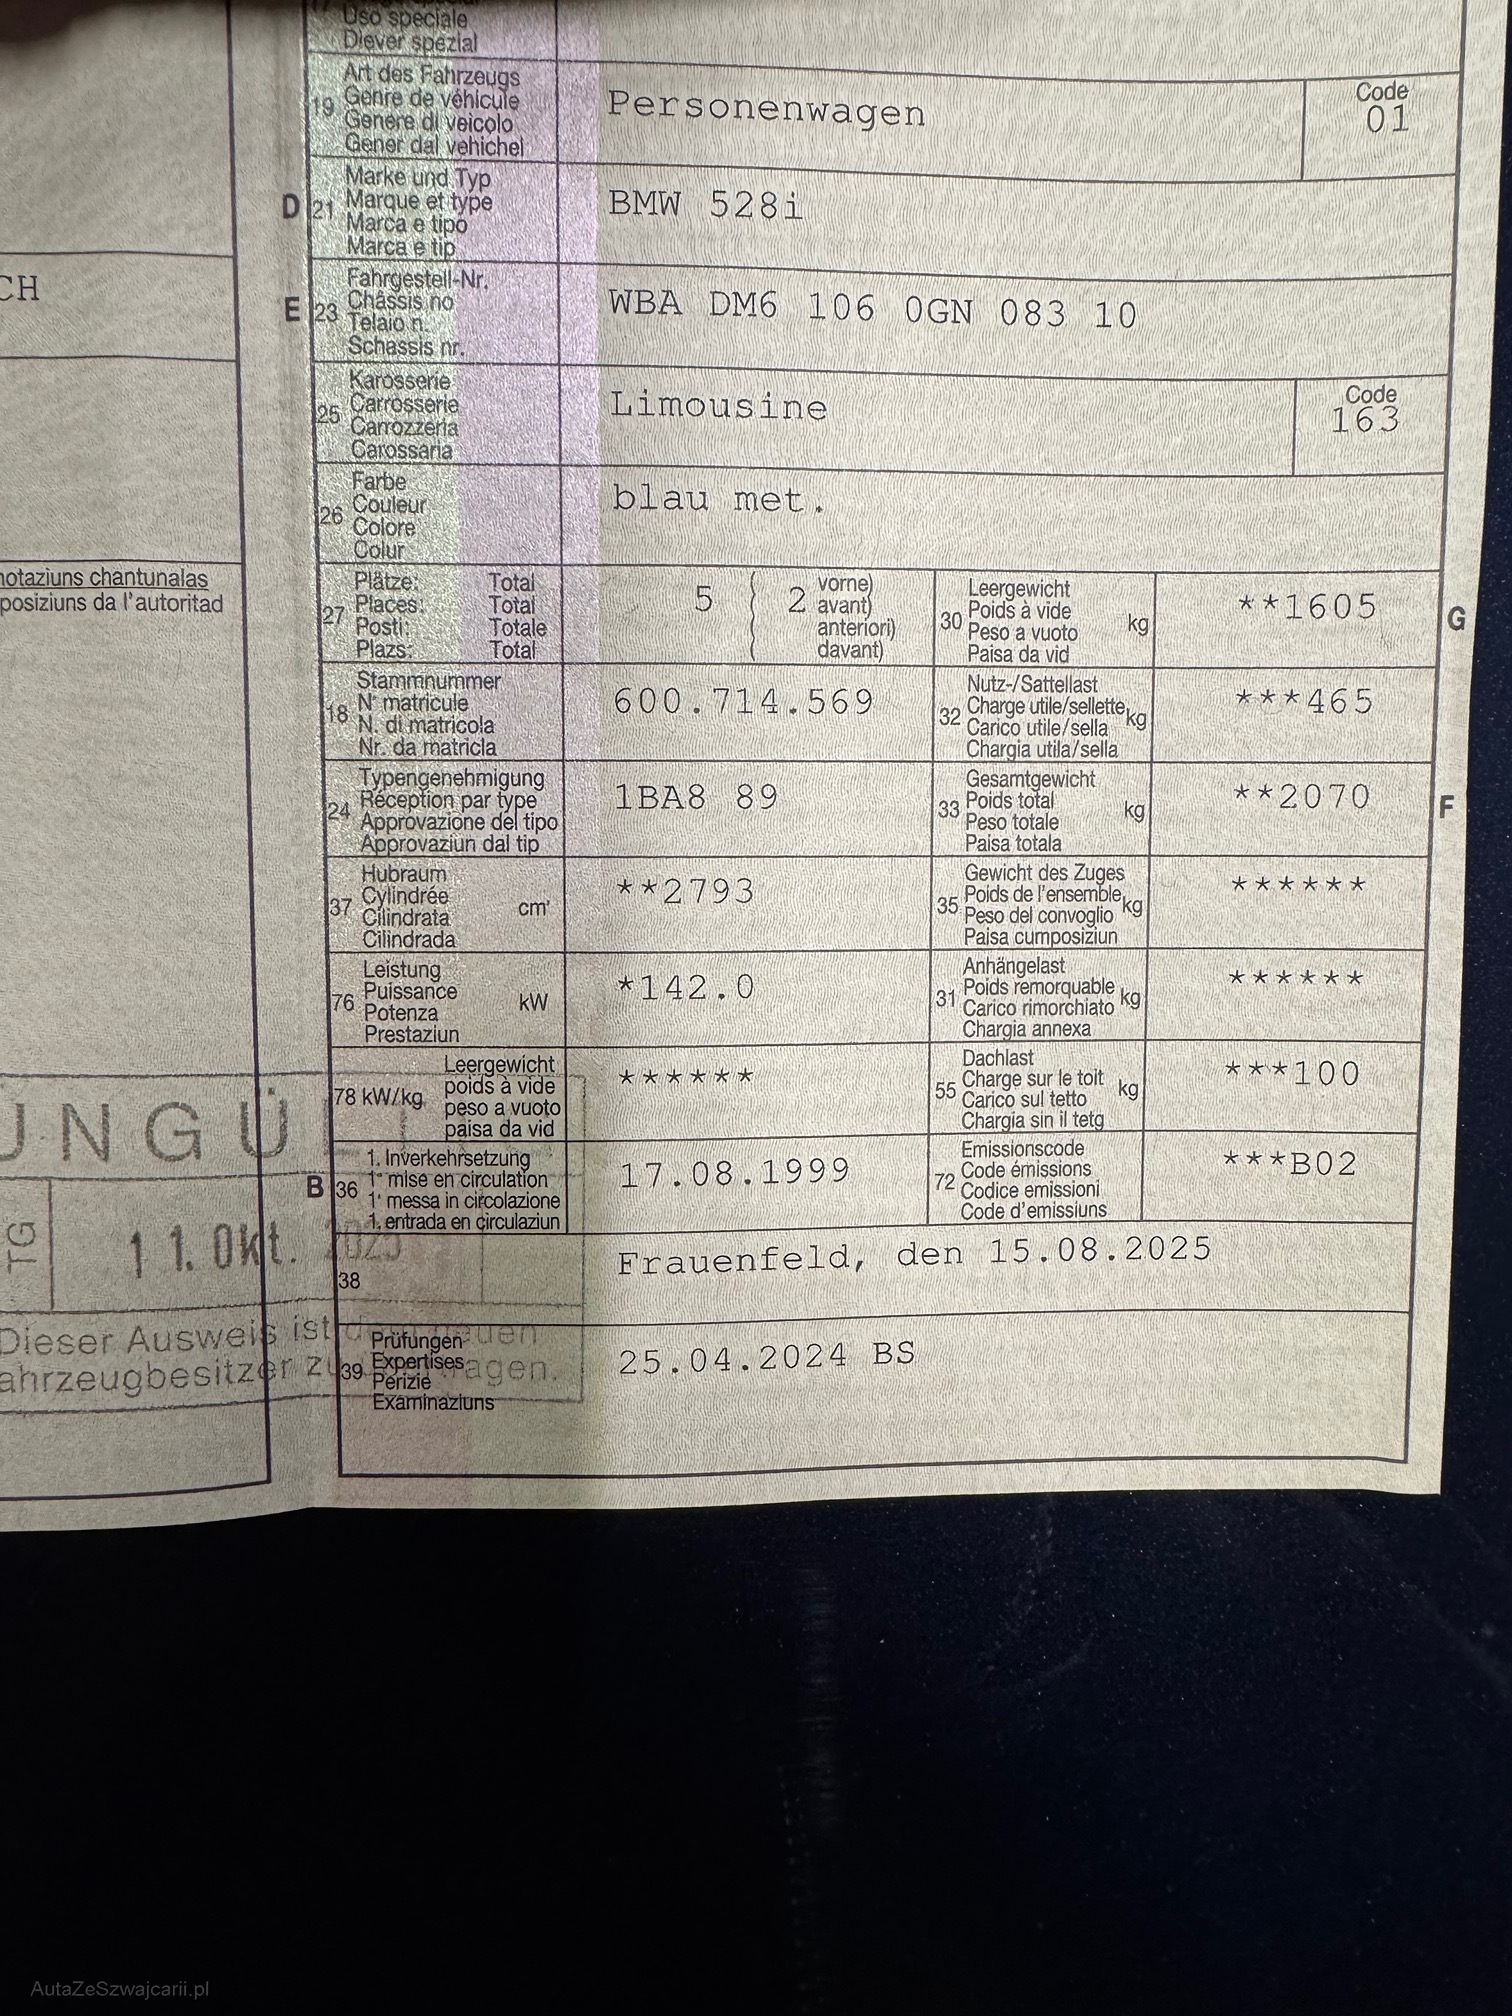 Uso speciale
Diever spezial
19 Art des Fahrzeugs
Genre de véhicule
Genere di veicolo
Gener dal vehichel
Personenwagen
Code
01
D 21 Marke und Typ
Marque et type
Marca e tipo
Marca e tip
BMW 528i
CH
E 23 Fahrgestell-Nr.
Châssis no
Telaio n.
Schassis nr.
WBA DM6 106 0GN 083 10
25 Karosserie
Carrosserie
Carrozzeria
Carossaria
Limousine
Code
163
26 Farbe
Couleur
Colore
Colur
blau met.
notaziuns chantunalas
posiziuns da l'autoritad
27 Plätze: Total
Places: Total
Posti: Totale
Plazs: Total
5 2 vorne)
avant)
anteriori)
davant)
30 Leergewicht
Poids à vide
Peso a vuoto
Paisa da vid
kg
**1605
G
18 Stammnummer
N° matricule
N. di matricola
Nr. da matricla
600.714.569
32 Nutz-/Sattellast
Charge utile/sellette
Carico utile/sella
Chargia utila/sella
kg
***465
24 Typengenehmigung
Réception par type
Approvazione del tipo
Approvaziun dal tip
1BA8 89
33 Gesamtgewicht
Poids total
Peso totale
Paisa totala
kg
**2070
F
37 Hubraum
Cylindrée
Cilindrata
Cilindrada
cm³
**2793
35 Gewicht des Zuges
Poids de l'ensemble
Peso del convoglio
Paisa cumposiziun
kg
******
76 Leistung
Puissance
Potenza
Prestaziun
kW
*142.0
31 Anhängelast
Poids remorquable
Carico rimorchiato
Chargia annexa
kg
******
78 kW/kg Leergewicht
poids à vide
peso a vuoto
paisa da vid
******
55 Dachlast
Charge sur le toit
Carico sul tetto
Chargia sin il tetg
kg
***100
UNGÜ
B 36 1. Inverkehrsetzung
1ʳᵉ mise en circulation
1ª messa in circolazione
1. entrada en circulaziun
17.08.1999
72 Emissionscode
Code émissions
Codice emissioni
Code d'emissiuns
***B02
TG
11. Okt. 2025
38
Frauenfeld, den 15.08.2025
Dieser Ausweis ist dem neuen
ahrzeugbesitzer
39 Prüfungen
Expertises
Perizie
Examinaziuns
25.04.2024 BS
AutaZeSzwajcarii.pl